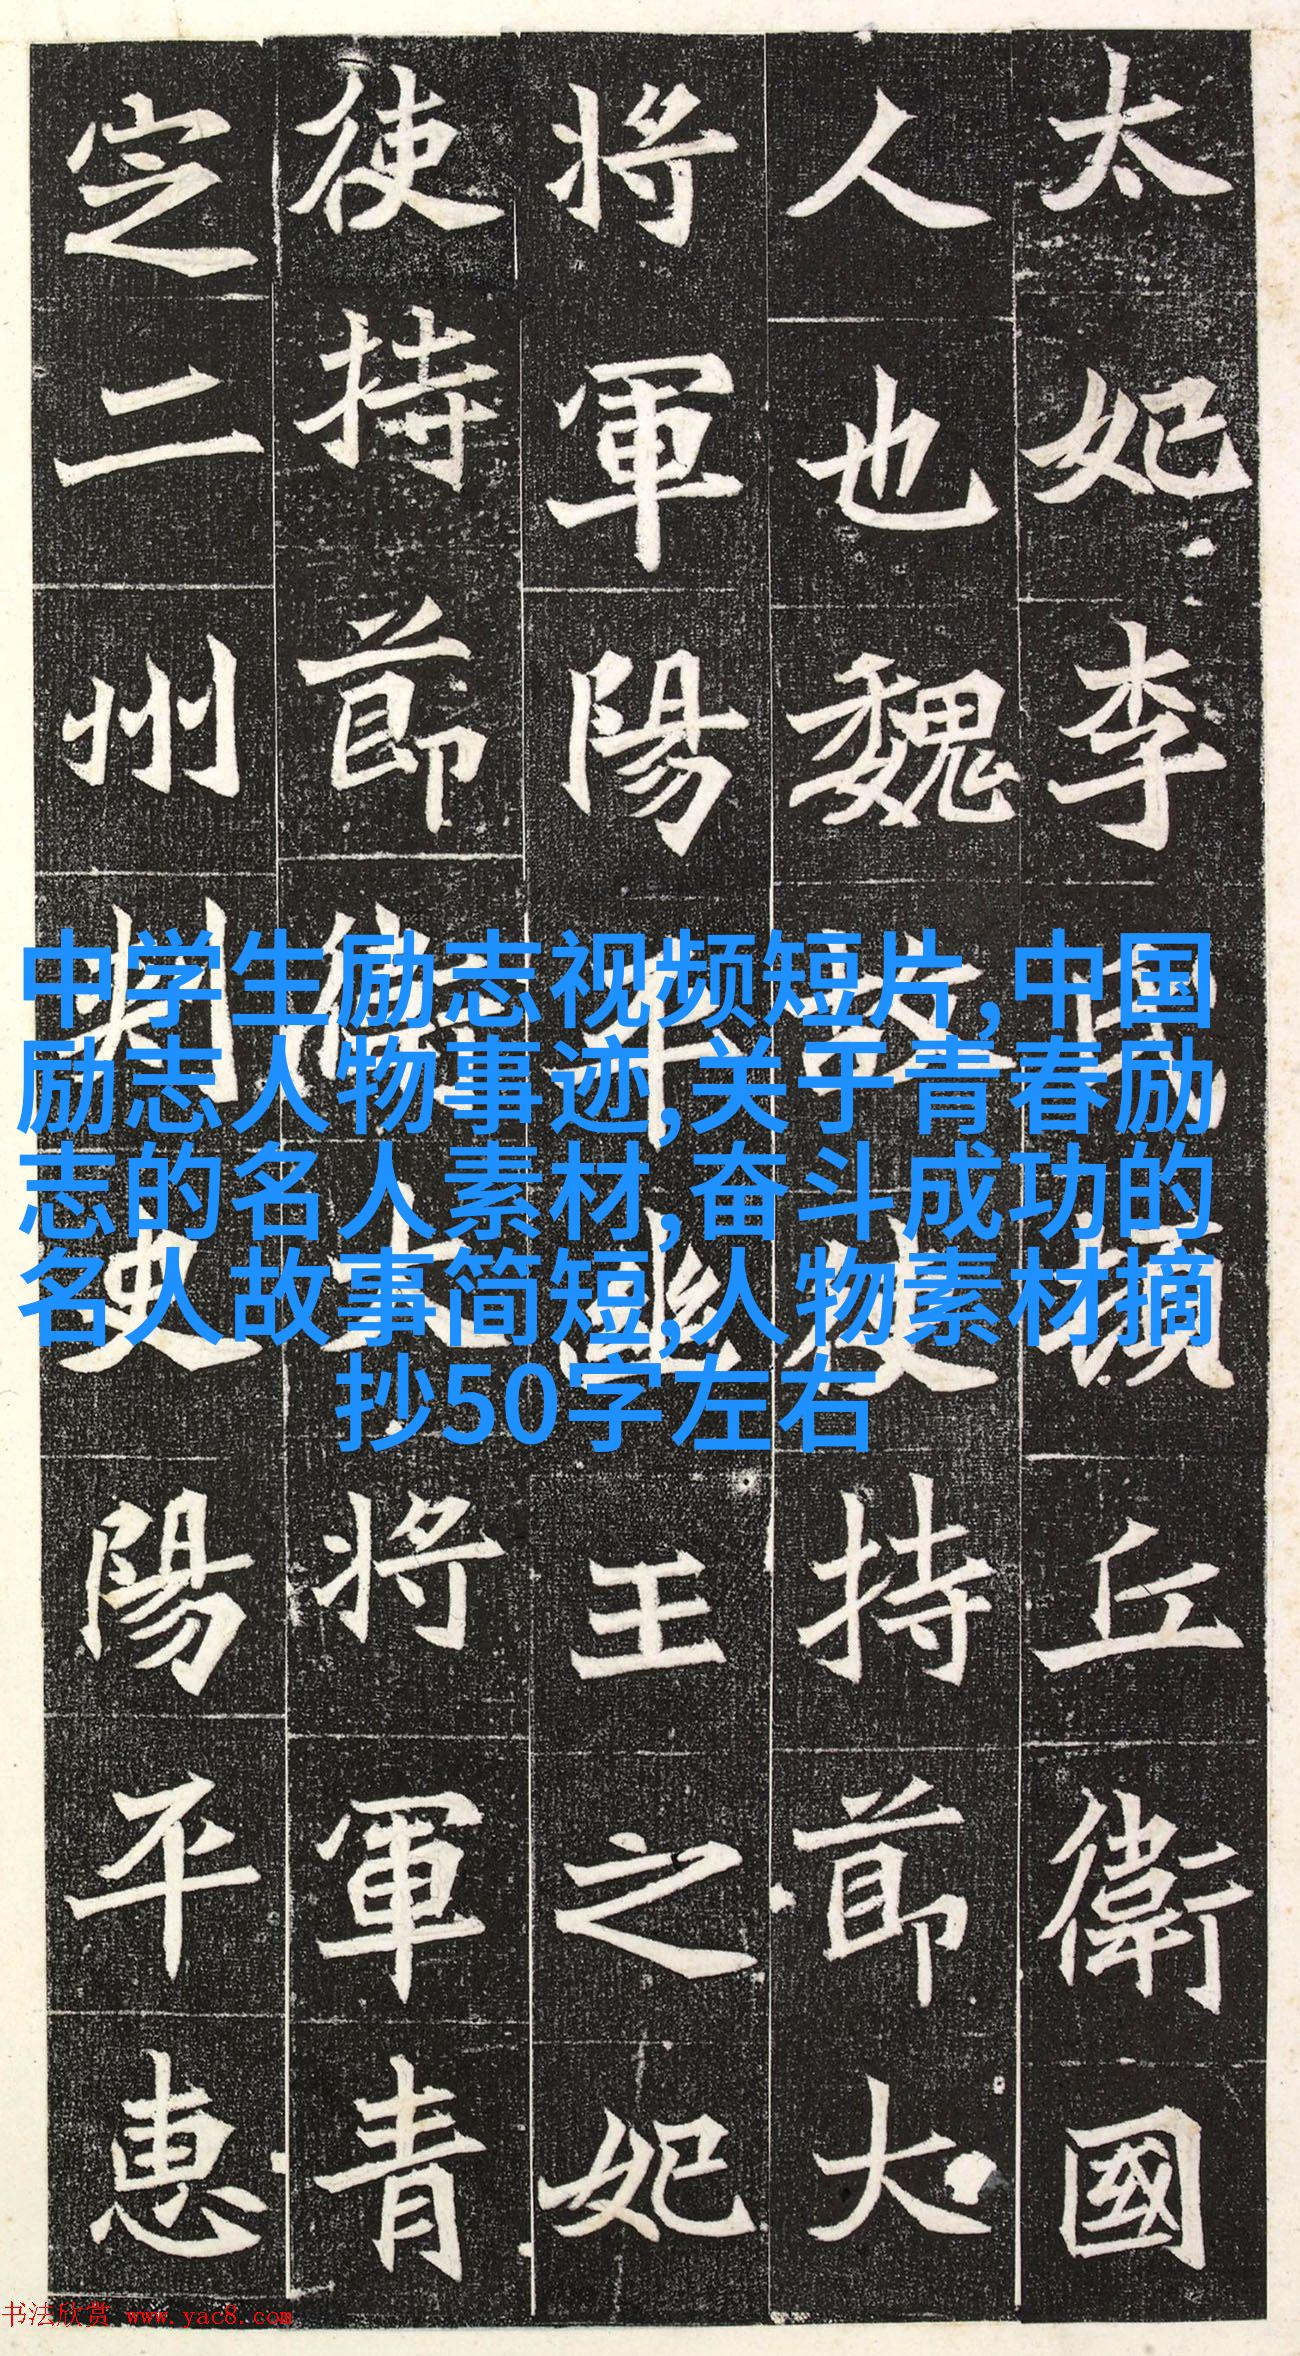 太妃李氏頓丘衛國
人也魏故使持節大
將軍陽平幽王之妃
使持節衛大將軍青
定二州刺史陽平惠
中学生励志视频短片,中国
励志人物事迹,关于青春励
志的名人素材,奋斗成功的
名人故事简短,人物素材摘
抄50字左右
书法欣赏 www.yac8.com